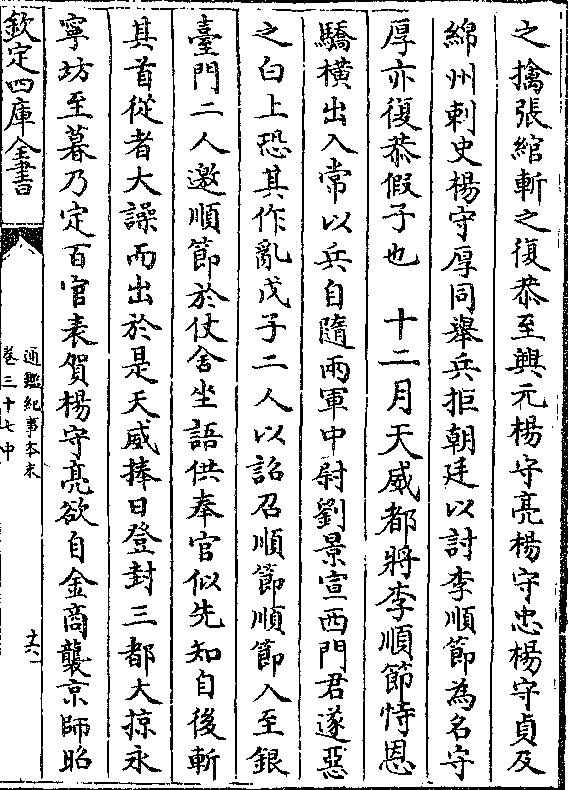 之擒張綰斬之復恭至興元楊守亮楊守忠楊守貞及
綿州刺史楊守厚同舉兵拒朝廷以討李順節為名守
厚亦復恭假子也　十二月天威都將李順節恃恩
驕橫出入常以兵自隨兩軍中尉劉景宣西門君遂惡
之白上恐其作亂戊子二人以詔召順節順節入至銀
臺門二人邀順節於仗舍坐語供奉官似先知自後斬
其首從者大譟而出於是天威捧日登封三都大掠永
寧坊至暮乃定百官表賀楊守亮欲自金商襲京師昭
欽定四庫全書
通鑑紀事本末
卷三十七中